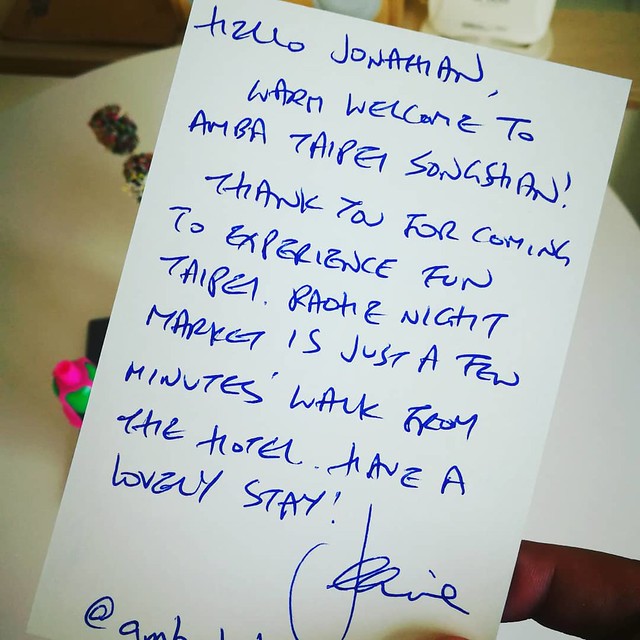 HELLO JONATHAN,
WARM WELCOME TO
AMBA TAIPEI SONGSHAN!
THANK YOU FOR COMING
TO EXPERIENCE FUN
TAIPEI. RAOHE NIGHT
MARKET IS JUST A FEW
MINUTES' WALK FROM
THE HOTEL. HAVE A
LOVELY STAY!